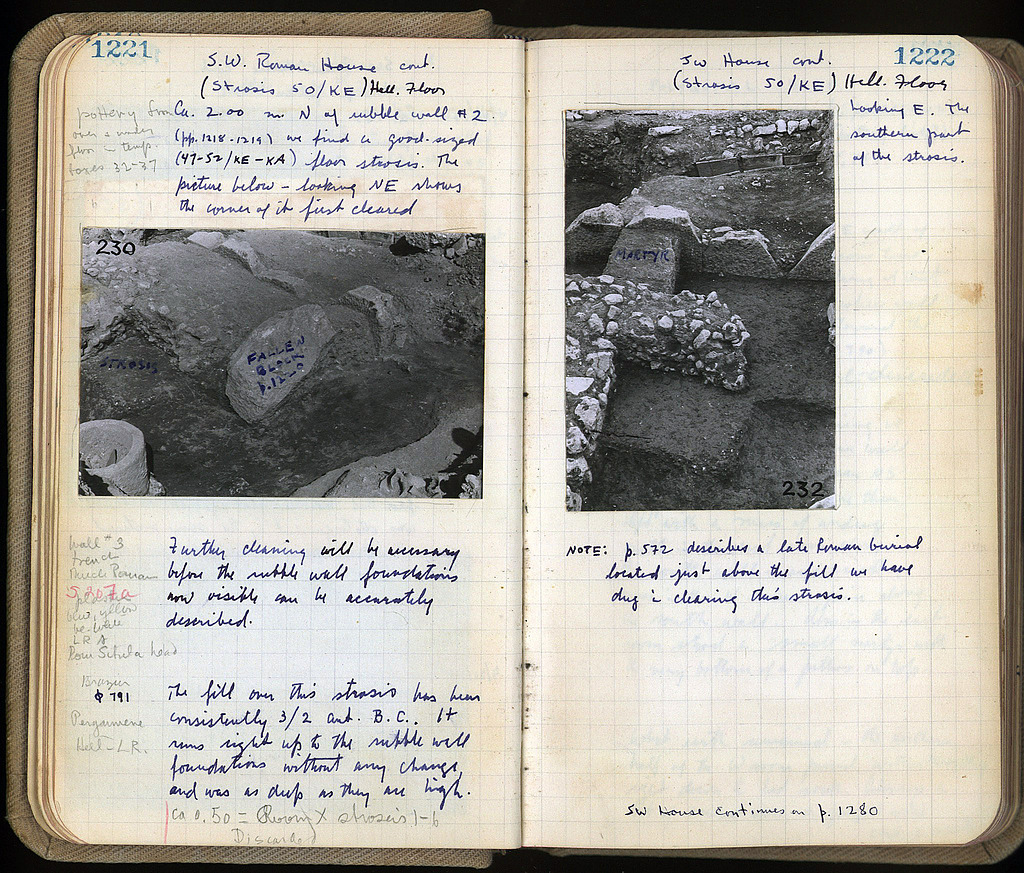 1221
S.W. Roman House cont.
(Strosis 50/KE) Hell. Floor
pottery from
over & under
floor in temp.
boxes 32-37
Ca. 2.00 m N of rubble wall #2
(pp. 1218-1219) we find a good-sized
(47-52/KE-KA) floor strosis. The
picture below - looking NE shows
the corner of it first cleared
230
STROSIS
FALLEN
BLOCK
Wall #3
trench
Thick Roman
S 207a
blue, yellow
LR A
Rom Situla head
Further cleaning will be necessary
before the rubble wall foundations
now visible can be accurately
described.
Brazier
φ 791
Pergamene
Hell-LR.
The fill over this strosis has been
consistently 3/2 cent. B.C.. It
runs right up to the rubble wall
foundations without any change
and was as deep as they are high.
ca 0.50 = Room X strosis 1-6
Discarded
1222
SW House cont.
(Strosis 50/KE) Hell. Floor
Looking E. The
southern part
of the strosis.
MARTYR
232
NOTE: p. 572 describes a late Roman burial
located just above the fill we have
dug i clearing this strosis.
SW House continues on p. 1280